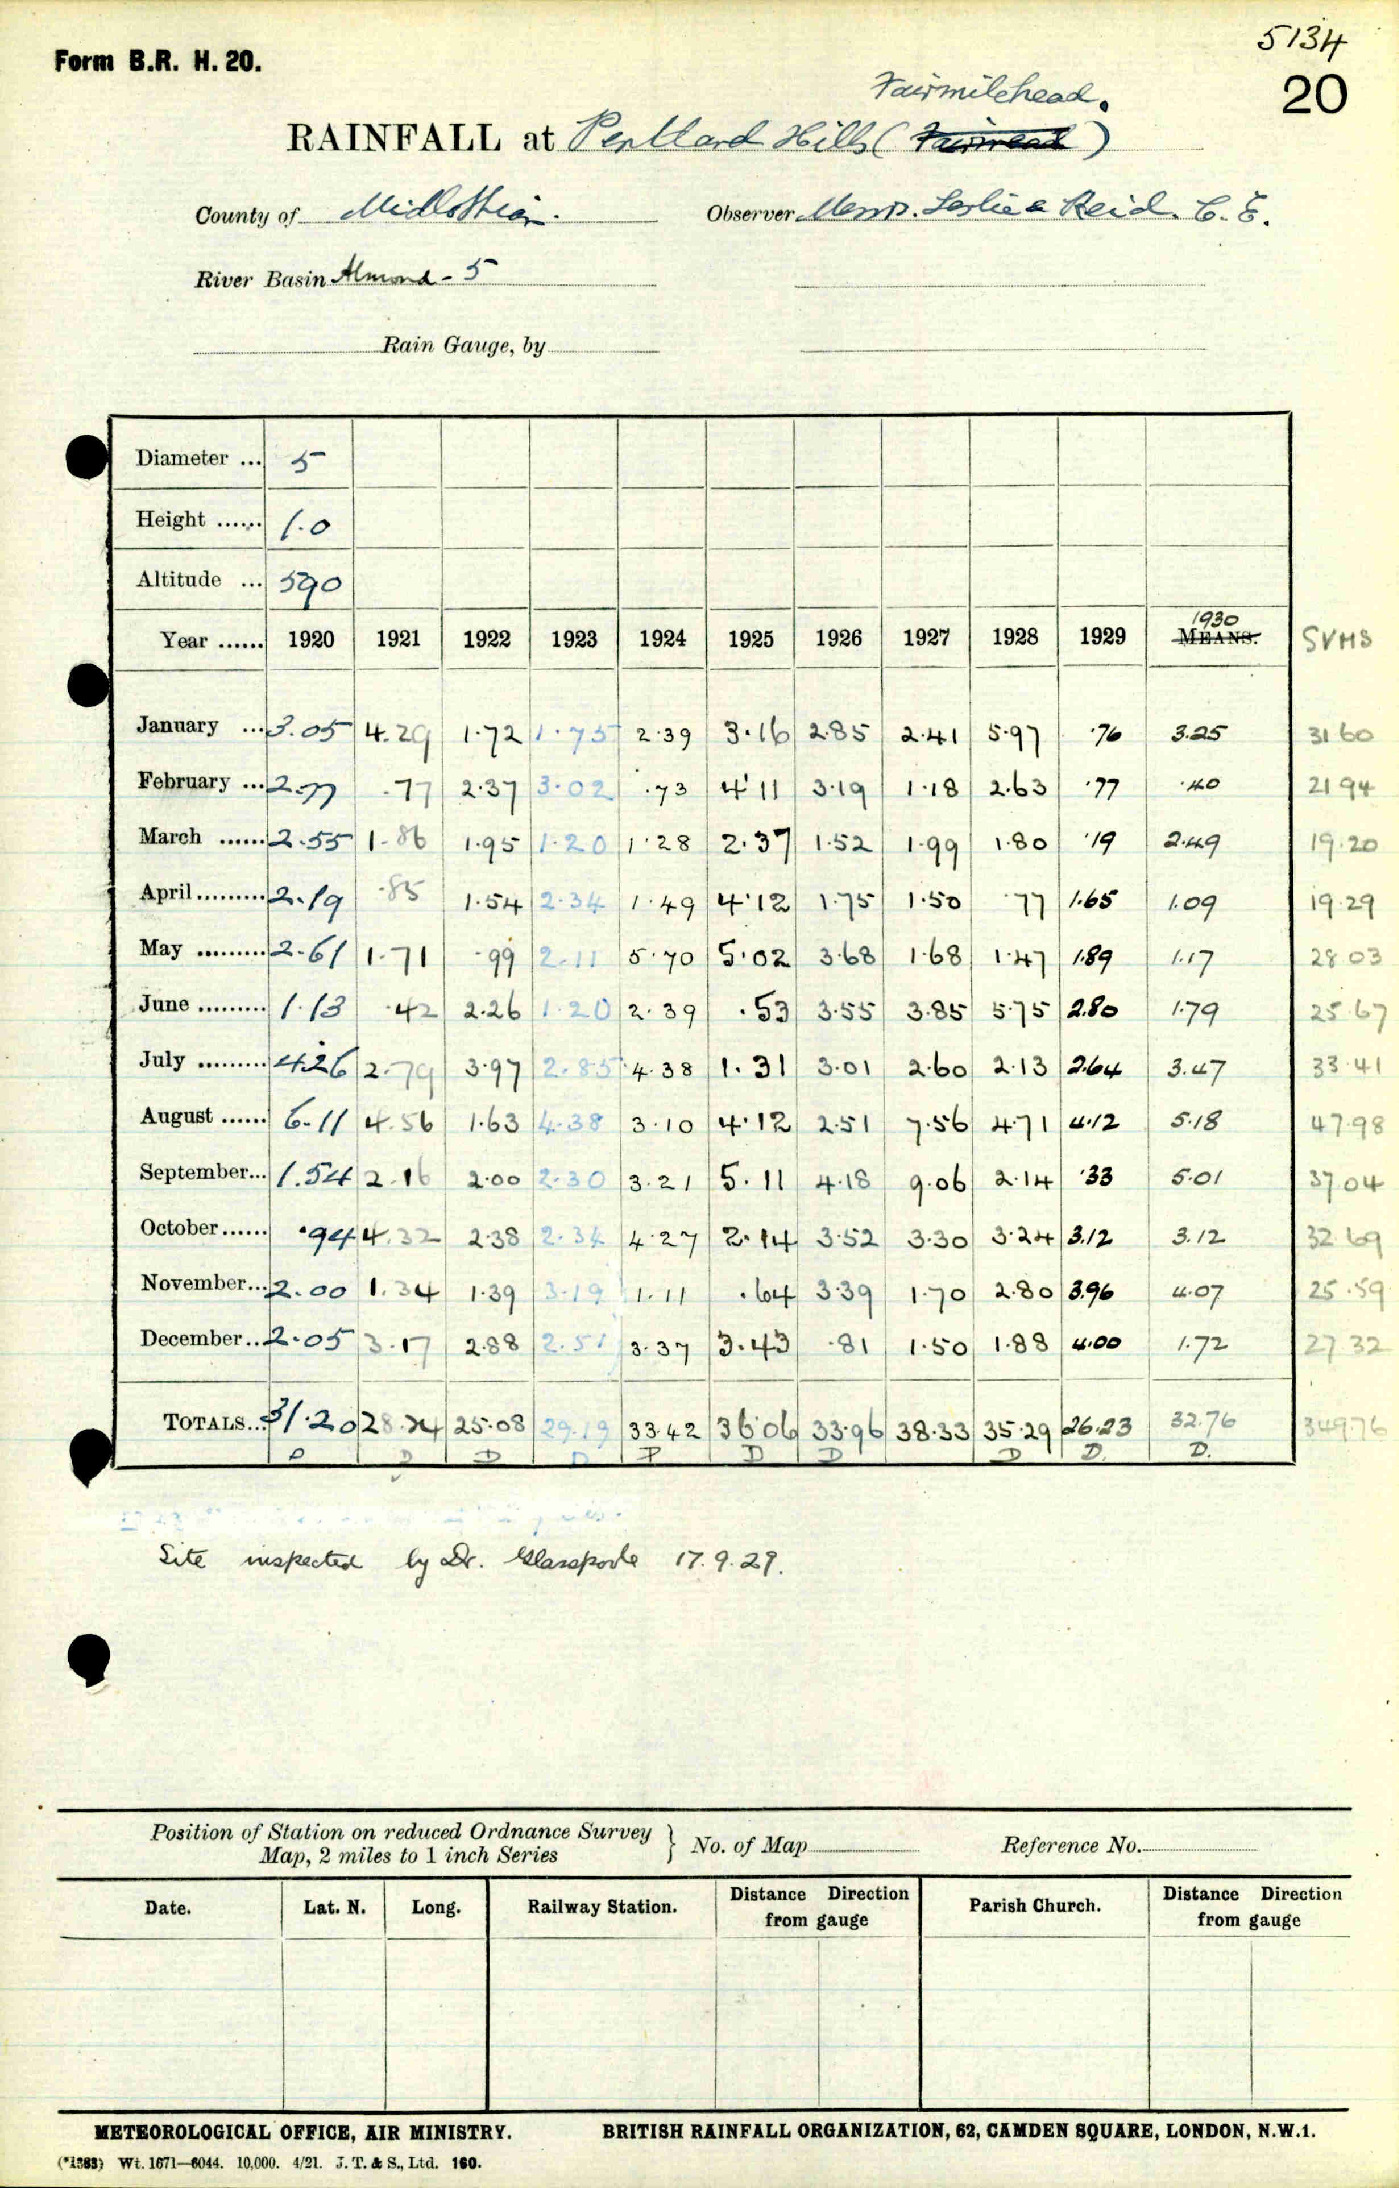 5134
Form B.R. H. 20.
20
Fairmilehead.
RAINFALL at Pentland Hills ( )
County of Midlothian. Observer Messrs. Leslie & Reid. C.E.
River Basin Almond - 5
Rain Gauge, by
Diameter ... 5
Height ...... 1.0
Altitude ... 590
Year ...... 1920 1921 1922 1923 1924 1925 1926 1927 1928 1929 1930 MEANS. SUMS
January ... 3.05 4.29 1.72 1.75 2.39 3.16 2.85 2.41 5.97 .76 3.25 31 60
February ... 2.77 .77 2.37 3.02 .73 4.11 3.19 1.18 2.63 .77 .40 21 94
March ...... 2.55 1.86 1.95 1.20 1.28 2.37 1.52 1.99 1.80 .19 2.49 19.20
April ......... 2.19 .85 1.54 2.34 1.49 4.12 1.75 1.50 .77 1.65 1.09 19.29
May ......... 2.61 1.71 .99 2.11 5.70 5.02 3.68 1.68 1.47 1.89 1.17 28 03
June ......... 1.13 .42 2.26 1.20 2.39 .53 3.55 3.85 5.75 2.80 1.79 25.67
July ......... 4.26 2.79 3.97 2.85 4.38 1.31 3.01 2.60 2.13 2.64 3.47 33.41
August ...... 6.11 4.56 1.63 4.38 3.10 4.12 2.51 7.56 4.71 4.12 5.18 47.98
September... 1.54 2.16 2.00 2.30 3.21 5.11 4.18 9.06 2.14 .33 5.01 37.04
October...... .94 4.32 2.38 2.34 4.27 2.14 3.52 3.30 3.24 3.12 3.12 32.69
November... 2.00 1.34 1.39 3.19 1.11 .64 3.39 1.70 2.80 3.96 4.07 25.59
December.. 2.05 3.17 2.88 2.51 3.37 3.43 .81 1.50 1.88 4.00 1.72 27.32
TOTALS... 31.20 28.24 25.08 29.19 33.42 36.06 33.96 38.33 35.29 26.23 32.76 349.76
D D D D P D D D D. D.
Site inspected by Dr. Glasspoole 17.9.29.
Position of Station on reduced Ordnance Survey
Map, 2 miles to 1 inch Series } No. of Map Reference No.
Date. Lat. N. Long. Railway Station. Distance Direction from gauge Parish Church. Distance Direction from gauge
METEOROLOGICAL OFFICE, AIR MINISTRY. BRITISH RAINFALL ORGANIZATION, 62, CAMDEN SQUARE, LONDON, N.W.1.
(*1383) Wt. 1671—6044. 10,000. 4/21. J. T. & S., Ltd. 160.